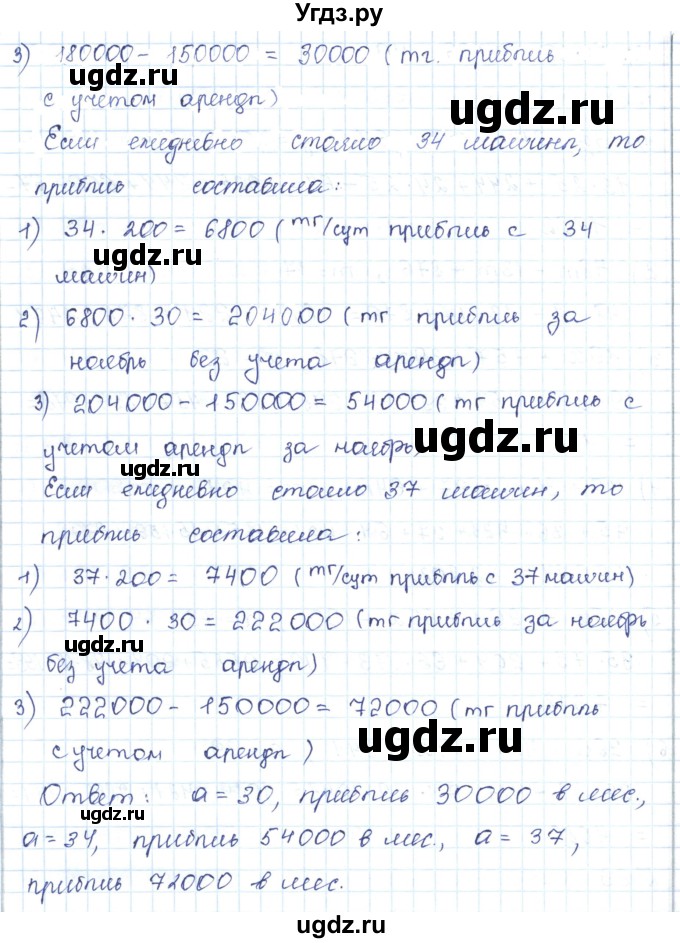 Угдз.ру
3) 180000 - 150000 = 30000 (тг. прибыль
с учетом аренды)
Если ежедневно стояло 34 машины, то
прибыль составила:
1) 34 · 200 = 6800 (тг/сут прибыль с 34
машин)
2) 6800 · 30 = 204000 (тг прибыль за
ноябрь без учета аренды)
3) 204000 - 150000 = 54000 (тг прибыль с
учетом аренды за ноябрь)
Если ежедневно стояло 37 машин, то
прибыль составила:
1) 37 · 200 = 7400 (тг/сут прибыль с 37 машин)
2) 7400 · 30 = 222000 (тг прибыль за ноябрь
без учета аренды)
3) 222000 - 150000 = 72000 (тг прибыль
с учетом аренды)
Ответ: а = 30, прибыль 30000 в мес.,
а = 34, прибыль 54000 в мес., а = 37,
прибыль 72000 в мес.
ugdz.ru
ugdz.ru
ugdz.ru
ugdz.ru
ugdz.ru
ugdz.ru
ugdz.ru
ugdz.ru
ugdz.ru
ugdz.ru